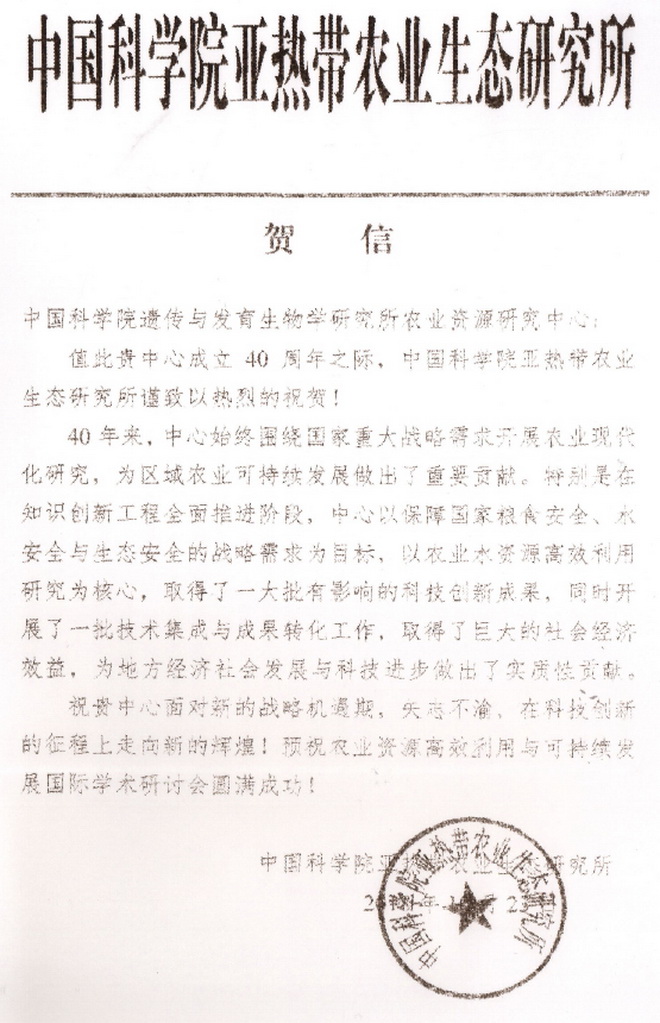 中国科学院亚热带农业生态研究所
贺 信
中国科学院遗传与发育生物学研究所农业资源研究中心：
值此贵中心成立 40 周年之际，中国科学院亚热带农业
生态研究所谨致以热烈的祝贺！
40 年来，中心始终围绕国家重大战略需求开展农业现代
化研究，为区域农业可持续发展做出了重要贡献。特别是在
知识创新工程全面推进阶段，中心以保障国家粮食安全、水
安全与生态安全的战略需求为目标，以农业水资源高效利用
研究为核心，取得了一大批有影响的科技创新成果，同时开
展了一批技术集成与成果转化工作，取得了巨大的社会经济
效益，为地方经济社会发展与科技进步做出了实质性贡献。
祝贵中心面对新的战略机遇期，矢志不渝，在科技创新
的征程上走向新的辉煌！预祝农业资源高效利用与可持续发
展国际学术研讨会圆满成功！
中国科学院亚热带农业生态研究所
中国科学院亚热带农业生态研究所